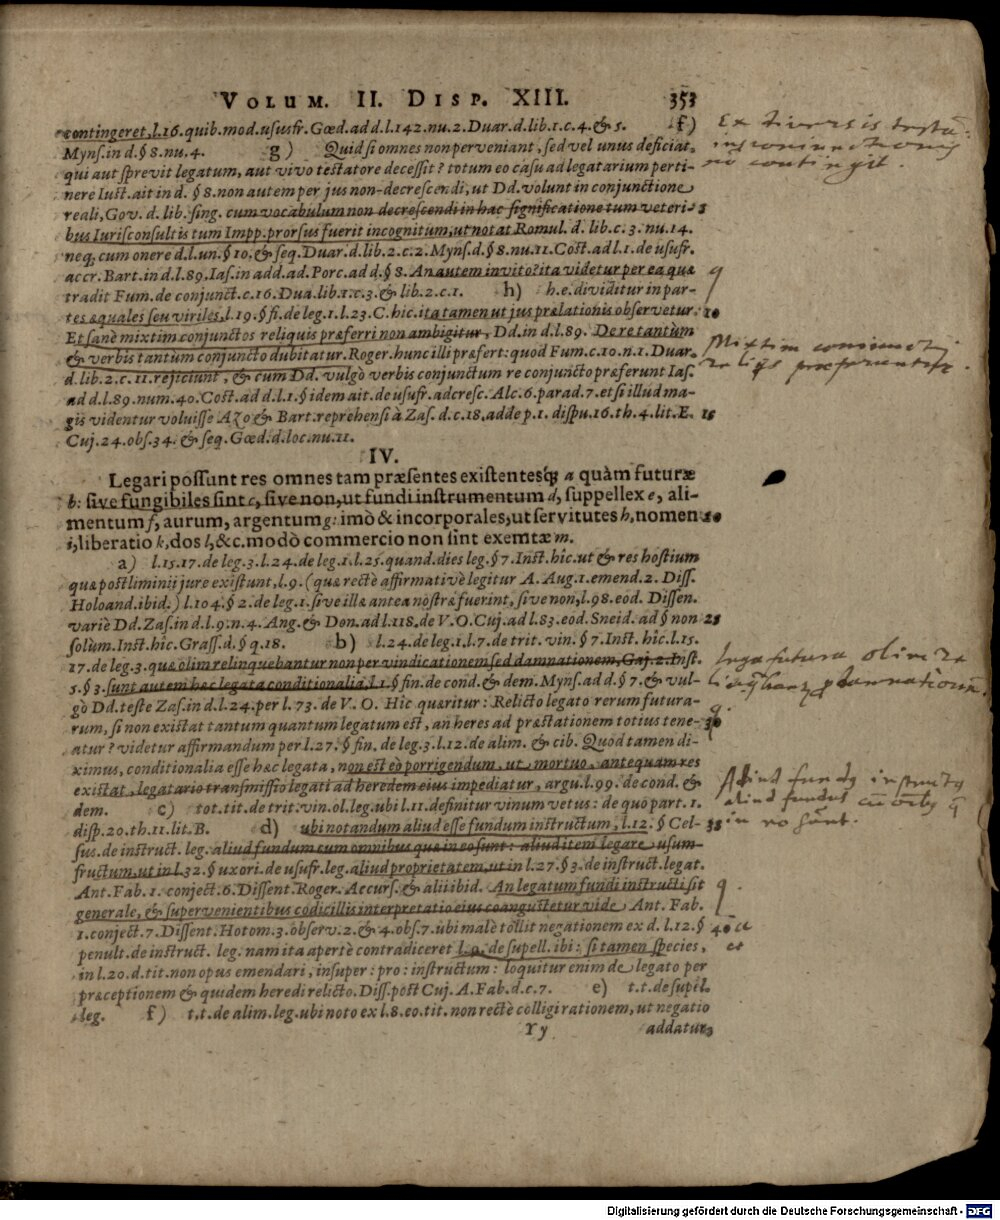 VOLUM. II. DISP. XIII. 353
contingeret, l.16. quib. mod. ususfr. Gœd. ad d. l. 142. nu. 2. Duar. d. lib. 1. c. 4. & 5. f)
Myns. in d. § 8. nu. 4. g) Quid si omnes non perveniant, sed vel unus deficiat,
qui aut sprevit legatum, aut vivo testatore decessit? totum eo casu ad legatarium perti-
nere Iust. ait in d. § 8. non autem per jus non-decrescendi, ut Dd. volunt in conjunctione
reali, Gov. d. lib. sing. cum vocabulum non decrescendi in hac significatione tum veteri- 5
bus Iurisconsultis tum Impp. prorsus fuerit incognitum, ut notat Romul. d. lib. c. 3. nu. 14.
neq; cum onere d. l. un. § 10. & seq. Duar. d. lib. 2. c. 2. Myns. d. § 8. nu. 11. Cost. ad l. 1. de usufr.
accr. Bart. in d. l. 89. Ias. in add. ad. Porc. ad d. § 8. An autem invito? ita videtur per ea quæ
tradit Fum. de conjunct. c. 16. Dua. lib. 1. c. 3. & lib. 2. c. 1. h) h. e. dividitur in par-
tes æquales seu viriles, l. 19. § fi. de leg. 1. l. 23. C. hic. ita tamen ut jus prælationis observetur. 10
Et sanè mixtim conjunctos reliquis præferri non ambigitur, Dd. in d. l. 89. De re tantùm
& verbis tantùm conjuncto dubitatur. Roger. hunc illi præfert: quod Fum. c. 10. n. 1. Duar.
d. lib. 2. c. 11. rejiciunt, & cum Dd. vulgò verbis conjunctum re conjuncto præferunt Ias.
ad d. l. 89. num. 40. Cost. ad d. l. 1. § idem ait. de usufr. adcresc. Alc. 6. parad. 7. et si illud ma-
gis videntur voluisse Azo & Bart. reprehensi à Zas. d. c. 18. adde p. 1. dispu. 16. th. 4. lit. E. 15
Cuj. 24. obs. 34. & seq. Gœd. d. loc. nu. 11.
IV.
Legari possunt res omnes tam præsentes existentesq; a quàm futuræ
b: sive fungibiles sint c, sive non, ut fundi instrumentum d, suppellex e, ali-
mentum f, aurum, argentum g: imò & incorporales, ut servitutes h, nomen 20
i, liberatio k, dos l, &c. modò commercio non sint exemtæ m.
a) l. 15. 17. de leg. 3. l. 24. de leg. 1. l. 25. quand. dies leg. § 7. Inst. hîc. ut & res hostium
quæ postliminii jure existunt, l. 9. (quæ rectè affirmativè legitur A. Aug. 1. emend. 2. Diss.
Holoand. ibid.) l. 104. § 2. de leg. 1. sive illæ antea nostræ fuerint, sive non, l. 98. eod. Dissen.
variè Dd. Zas. in d. l. 9. n. 4. Ang. & Don. ad l. 118. de V. O. Cuj. ad l. 83. eod. Sneid. ad § non 25
solùm. Inst. hîc. Grass. d. § q. 18. b) l. 24. de leg. 1. l. 7. de trit. vin. § 7. Inst. hîc. l. 15.
17. de leg. 3. quæ olim relinquebantur non per vindicationem sed damnationem, Gaj. 2. Inst.
5. § 3. sunt autem hæc legata conditionalia, l. 1. § fin. de cond. & dem. Myns. ad d. § 7. & vul-
gò Dd. teste Zas. in d. l. 24. per l. 73. de V. O. Hic quæritur: Relicto legato rerum futura-
rum, si non existat tantum quantum legatum est, an heres ad præstationem totius tene- 30
atur? videtur affirmandum per l. 27. § fin. de leg. 3. l. 12. de alim. & cib. Quod tamen di-
ximus, conditionalia esse hæc legata, non est eò porrigendum, ut mortuo, antequam res
existat, legatario transmissio legati ad heredem eius impediatur, argu. l. 99. de cond. &
dem. c) tot. tit. de trit. vin. ol. leg. ubi l. 11. definitur vinum vetus: de quò part. 1.
disp. 20. th. 11. lit. B. d) ubi notandum aliud esse fundum instructum, l. 12. § Cel- 35
sus. de instruct. leg. aliud fundum cum omnibus quæ in eo sunt: aliud item legare usum-
fructum, ut in l. 32. § uxori. de usufr. leg. aliud proprietatem, ut in l. 27. § 3. de instruct. legat.
Ant. Fab. 1. conject. 6. Dissent. Roger. Accurs. & alii ibid. An legatum fundi instructi sit
generale, & supervenientibus codicillis interpretatio eius coangustetur vide Ant. Fab.
1. conject. 7. Dissent. Hotom. 3. observ. 2. & 4. obs. 7. ubi malè tollit negationem ex d. l. 12. § 40
penult. de instruct. leg. nam ita apertè contradiceret l. 9. de supell. ibi: si tamen species,
in l. 20. d. tit. non opus emendari, insuper: pro: instructum: loquitur enim de legato per
præceptionem & quidem heredi relicto. Diss. post Cuj. A. Fab. d. c. 7. e) t. t. de supil.
leg. f) t. t. de alim. leg. ubi noto ex l. 8. eo. tit. non rectè colligi rationem, ut negatio
Yy addatur
Ex diversis
contingit.
Mixtim coniuncti
reliqs præferuntur.
legata futura olim re
q
Aliud fundus instructus
aliud fundus cum omnibus q
in eo sunt.
q
Digitalisierung gefördert durch die Deutsche Forschungsgemeinschaft - DFG